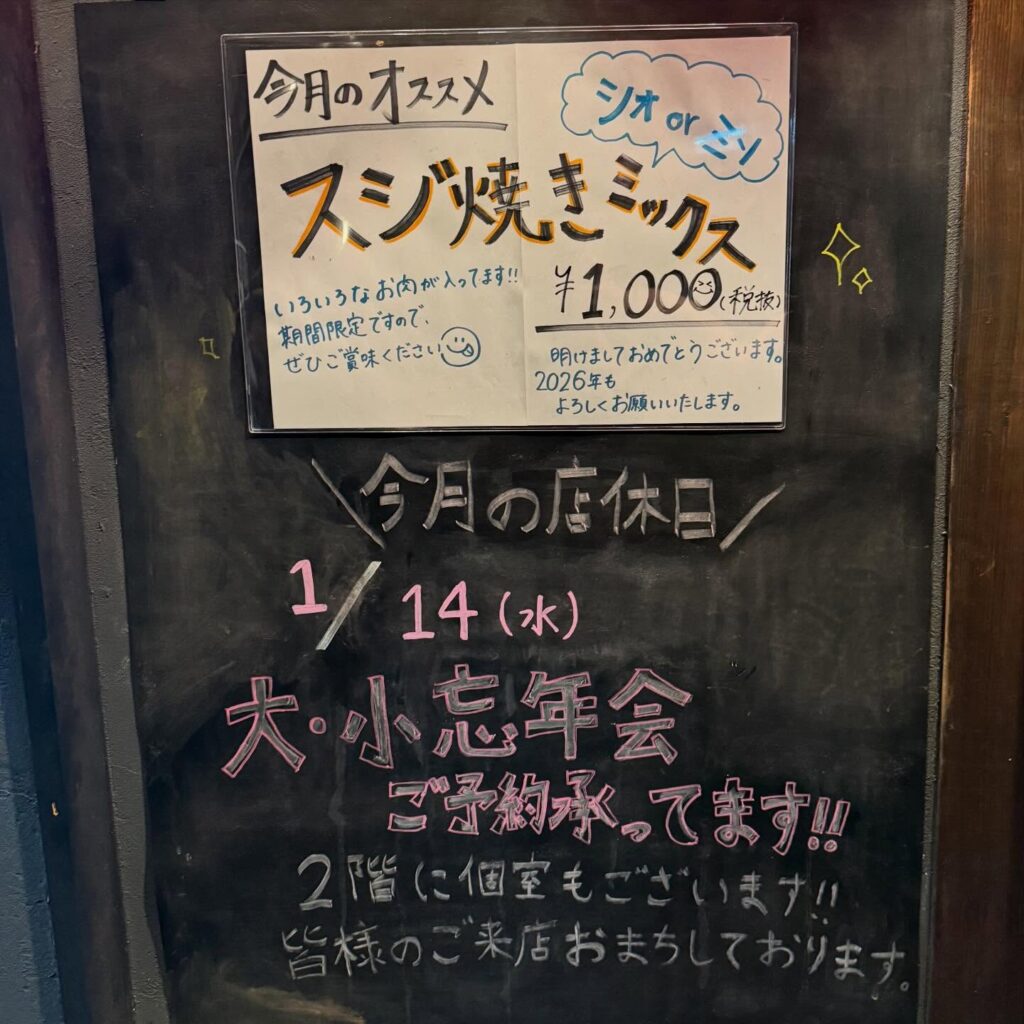 今月のオススメ
シオ or ミソ
スジ焼きミックス
¥1,000(税抜)
いろいろなお肉が入ってます!!
期間限定ですので、
ぜひご賞味ください
明けましておめでとうございます。
2026年も
よろしくお願いいたします。
\今月の店休日/
1/14(水)
大・小忘年会
ご予約承ってます!!
2階に個室もございます!!
皆様のご来店おまちしております。